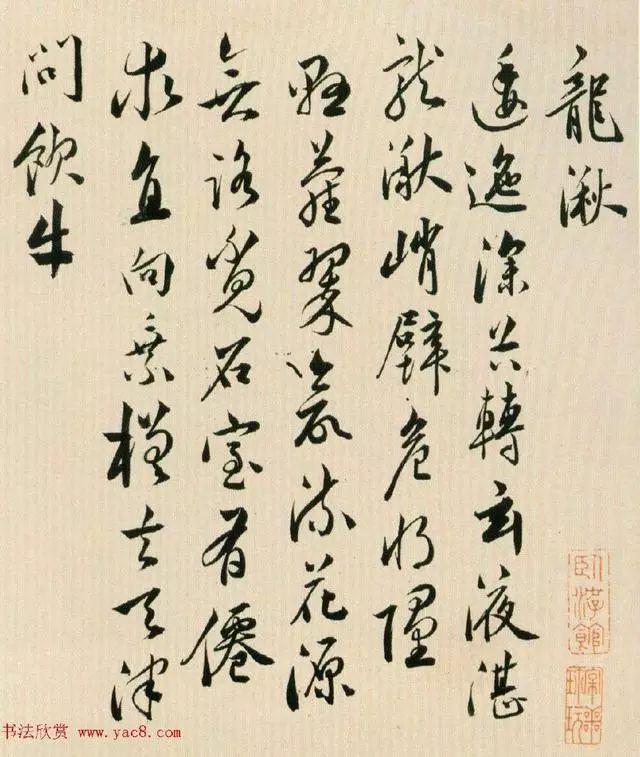 龍湫
逶迤深谷轉玄液湛
龍湫峭壁危將墮
懸蘿翠欲流花源
無路覓石室有僊
求直向乘槎去天津
問飲牛
臥游館
书法欣赏 www.yac8.com